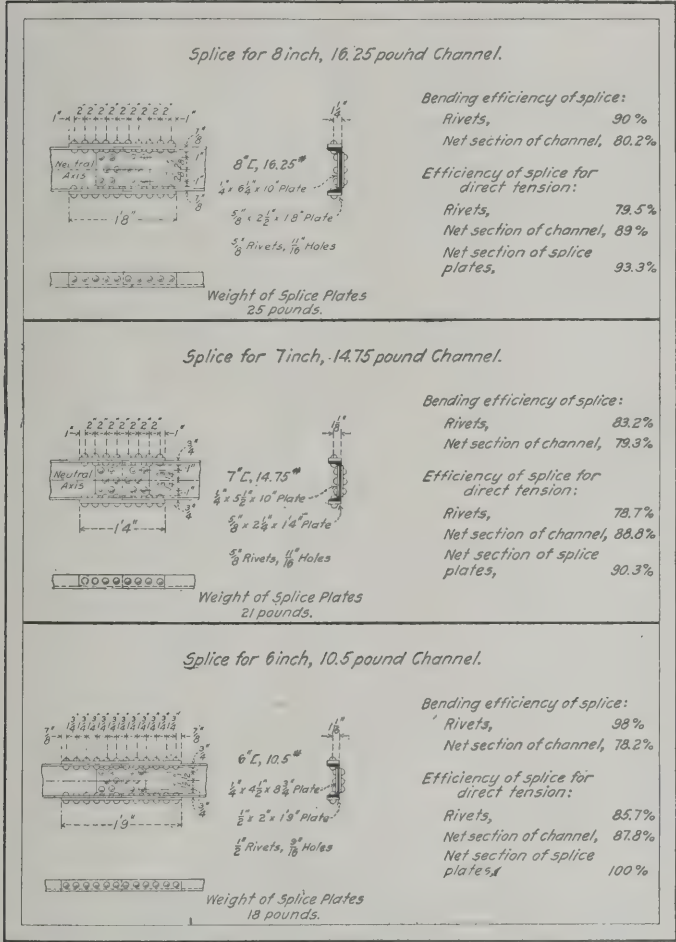 Splice for 8 inch, 16.25 pound Channel.
1" 2" 2" 2" 2" 2" 2" 2" 2" 2" 1"
7/8"
1"
1"
7/8"
Neutral
Axis
1'8"
1 1/4"
8"[, 16.25#
1/4" x 6 1/4" x 10" Plate
5/8" x 2 1/2" x 1'8" Plate
5/8" Rivets, 11/16" Holes
Weight of Splice Plates
25 pounds.
Bending efficiency of splice:
Rivets, 90%
Net section of channel, 80.2%
Efficiency of splice for
direct tension:
Rivets, 79.5%
Net section of channel, 89%
Net section of splice
plates, 93.3%
Splice for 7 inch, 14.75 pound Channel.
1" 2" 2" 2" 2" 2" 2" 2" 1"
3/4"
1"
1"
3/4"
Neutral
Axis
1'4"
1 1/8"
7"[, 14.75#
1/4" x 5 1/2" x 10" Plate
5/8" x 2 1/4" x 1'4" Plate
5/8" Rivets, 11/16" Holes
Weight of Splice Plates
21 pounds.
Bending efficiency of splice:
Rivets, 83.2%
Net section of channel, 79.3%
Efficiency of splice for
direct tension:
Rivets, 78.7%
Net section of channel, 88.8%
Net section of splice
plates, 90.3%
Splice for 6 inch, 10.5 pound Channel.
7/8" 1 3/4" 1 3/4" 1 3/4" 1 3/4" 1 3/4" 1 3/4" 1 3/4" 1 3/4" 1 3/4" 1 3/4" 1 3/4" 7/8"
3/4"
3/4"
1'9"
1 1/8"
6"[, 10.5#
1/4" x 4 1/2" x 8 3/4" Plate
1/2" x 2" x 1'9" Plate
1/2" Rivets, 9/16" Holes
Weight of Splice Plates
18 pounds.
Bending efficiency of splice:
Rivets, 98%
Net section of channel, 78.2%
Efficiency of splice for
direct tension:
Rivets, 85.7%
Net section of channel, 87.8%
Net section of splice
plates, 100%